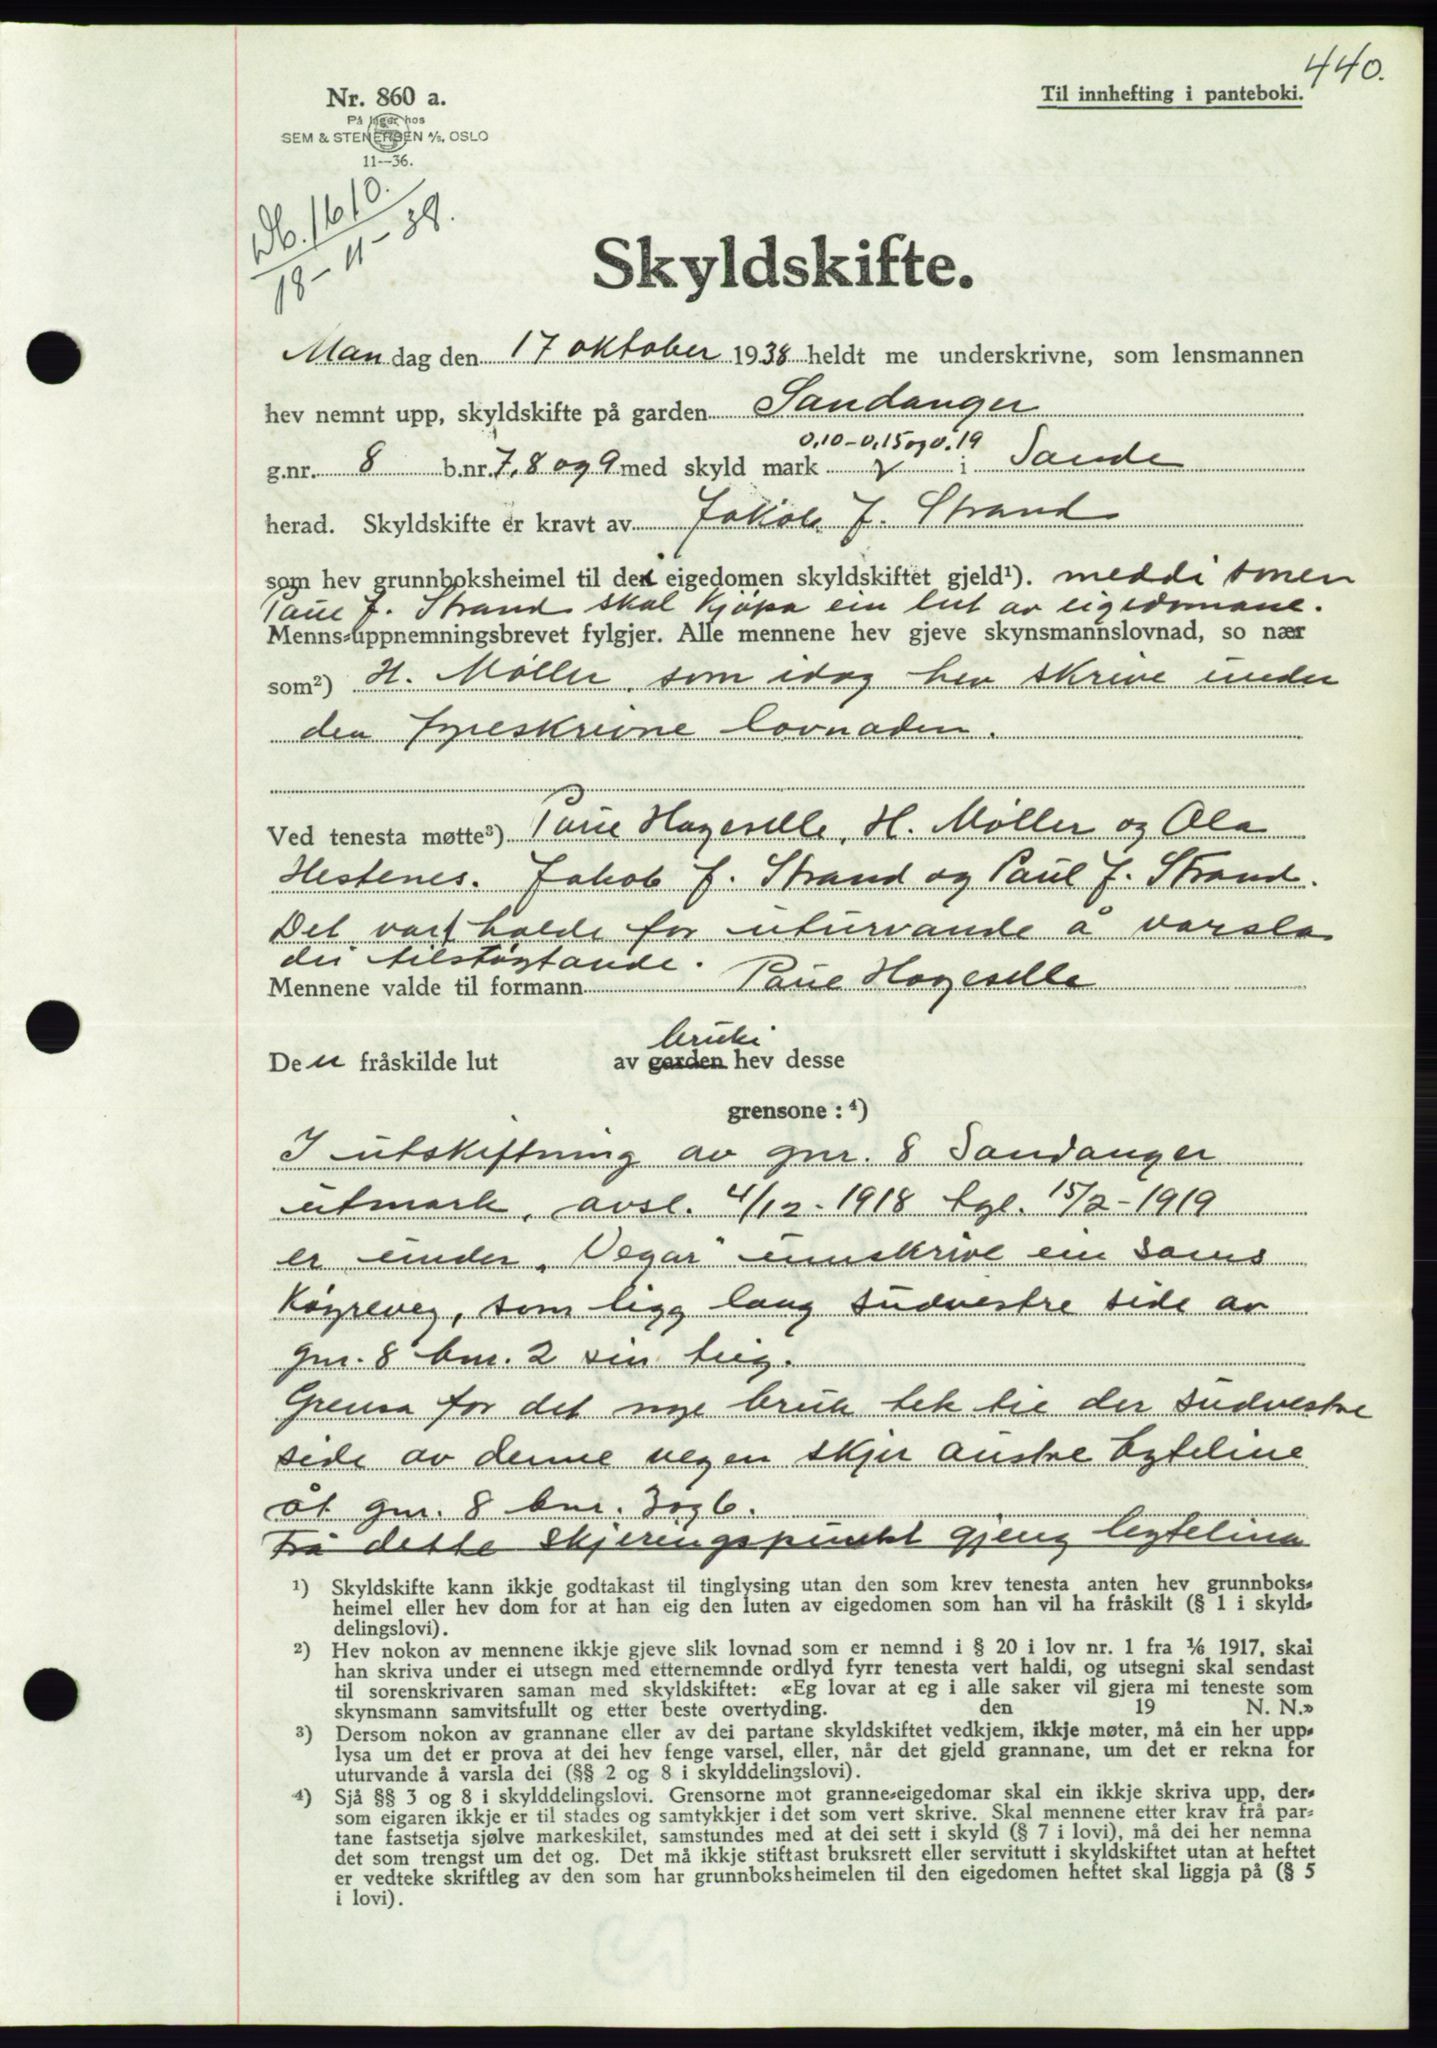 440.
Nr. 860 a.
Til innhefting i panteboki.
På lager hos
SEM & STENERSEN A/S, OSLO
11—36.
Db. 1610.
18-11-38.
Skyldskifte.
Mandag den 17 oktober 1938 heldt me underskrivne, som lensmannen
hev nemnt upp, skyldskifte på garden Sandanger
0,10-0,15 og 0.19
g.nr. 8 b.nr. 7, 8 og 9 med skyld mark i Sande
herad. Skyldskifte er kravt av Jakob J. Strand
som hev grunnboksheimel til dei eigedomen skyldskiftet gjeld¹). meddi sonen
Paul J. Strand skal kjøpa ein lut av eigedomane.
Menns-uppnemningsbrevet fylgjer. Alle mennene hev gjeve skynsmannslovnad, so nær
som²) H. Møller, som idag hev skrive under
den fyreskrivne lovnaden.
Ved tenesta møtte³) Paul Hageselle, H. Møller og Ola
Hestenes. Jakob J. Strand og Paul J. Strand.
Det vart halde for uturvande å varsla
dei tilstøytande.
Mennene valde til formann Paul Hageselle
bruki
Den fråskilde lut av garden hev desse
grensone: ⁴)
I utskiftning av gnr. 8 Sandanger
utmark, avsl. 4/12-1918 tgl. 15/2-1919
er under „Vegar" innskrive ein sams
køyreveg, som ligg lang sudvestre side av
gnr. 8 bnr. 2 sin teig.
Grensa for det nye bruk tek til der sudvestre
side av denne vegen skjer austre byteline
åt gnr. 8 bnr. 3 og 6.
Frå dette skjeringspunkt gjeng bytelina
¹) Skyldskifte kann ikkje godtakast til tinglysing utan den som krev tenesta anten hev grunnboks-
heimel eller hev dom for at han eig den luten av eigedomen som han vil ha fråskilt (§ 1 i skyld-
delingslovi).
²) Hev nokon av mennene ikkje gjeve slik lovnad som er nemnd i § 20 i lov nr. 1 fra 1/6 1917, skal
han skriva under ei utsegn med etternemnde ordlyd fyrr tenesta vert haldi, og utsegni skal sendast
til sorenskrivaren saman med skyldskiftet: «Eg lovar at eg i alle saker vil gjera mi teneste som
skynsmann samvitsfullt og etter beste overtyding. den 19 N. N.»
³) Dersom nokon av grannane eller av dei partane skyldskiftet vedkjem, ikkje møter, må ein her upp-
lysa um det er prova at dei hev fenge varsel, eller, når det gjeld grannane, um det er rekna for
uturvande å varsla dei (§§ 2 og 8 i skylddelingslovi).
⁴) Sjå §§ 3 og 8 i skylddelingslovi. Grensorne mot granne-eigedomar skal ein ikkje skriva upp, der-
som eigaren ikkje er til stades og samtykkjer i det som vert skrive. Skal mennene etter krav frå par-
tane fastsetja sjølve markeskilet, samstundes med at dei sett i skyld (§ 7 i lovi), må dei her nemna
det som trengst um det og. Det må ikkje stiftast bruksrett eller servitutt i skyldskiftet utan at heftet
er vedteke skriftleg av den som har grunnboksheimelen til den eigedomen heftet skal liggja på (§ 5
i lovi).